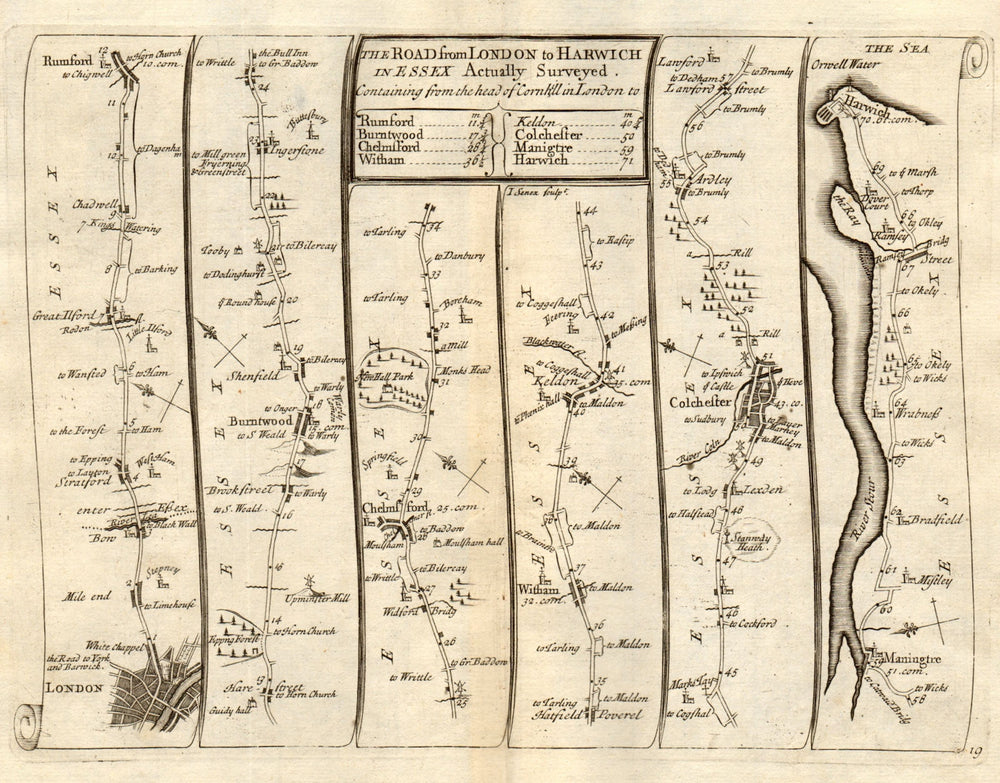 THE ROAD from LONDON to HARWICH
IN ESSEX Actually Surveyed.
Containing from the head of Cornhill in London to
m
Rumford 11¾
Burntwood
Chelmsford
Witham
m
Keldon
Colchester 50
Manigtre 59
Harwich 71
Rumford
12
to Horn Church
10. com.
to Chigwell
11
to Dagenham
10
Chadwell
9
7 Kings Watering
8
to Barking
Great Ilford
7
Redon
Little Ilford
6
to Wansted
to Ham
5
to the Forest
to Ham
to Epping
to Layton
West Ham
Stratford
4
enter Essex
River Lee
to Black Wall
Bow
Stepney
2
Mile end
to Limehouse
1
White Chappel
the Road to York
and Barwick.
LONDON
ESSEX
to Writtle
the Bull Inn
to Gr. Baddow
24
Buttesbury
23
to Mill green
Ingerstone
Fryerning
& Greenstreet
22
Tooby
21
to Bilercay
to Dodinghurst
ye Round house
20
19
to Bilercay
Shenfield
to Warly
18
to Onger
Burntwood
15. com.
to S. Weald
to Warly
Brookstreet
to Warly
to S. Weald
16
16
Upminster Mill
14
Epping Forest
to Horn Church
13
Hare street
to Horn Church
Guidy hall
ESSEX
to Tarling
34
to Danbury
33
to Tarling
Boreham
32
a Mill
New Hall Park
Monks Head
31
30
Springfield
29
Chelmsford
25. com.
to Baddow
28
Moulsham
Moulsham hall
to Writtle
to Bilercay
27
Widford Bridg
26
to Gr. Baddow
to Writtle
25
ESSEX
I. Senex sculpt.
44
to Easttp
43
to Coggeshall
Feering
42
to Messing
Blackwater R.
to Coggeshall
41
Keldon
35. com
to Phenix hall
to Maldon
40
39
38
to Maldon
to Braintre
37
Witham
to Maldon
32. com.
36
to Tarling
to Maldon
35
to Maldon
to Tarling
Hatfield Poverel
ESSEX
Lawford
to Brumly
to Dedham
57
Lawford street
to Brumly
56
to Brumly
to Dedham
Ardley
55
to Brumly
54
a Rill
53
52
a Rill
51
to Ipswich
ye Castle
ye Heve
Colchester
43. co.
to Sudbury
50
to Layer Marney
to Maldon
River Coln
49
to Lodg
Lexden
to Halstead
48
Stanway
Heath.
47
46
to Cockford
45
Marks Tay
to Cogshal
ESSEX
THE SEA
Orwell Water
Harwich
70. 61. com.
69
to ye Marsh
to Thorp
Dover
Court
the Ray
68
to Okley
Ramsey
Ramsey Bridg
Street
67
to Okely
66
65
to Okely
to Wicks
64
Wrabness
to Wicks
63
62
Bradfield
River Stour
61
Mistley
60
Maningtre
51. com.
to Wicks
58
ESSEX
19